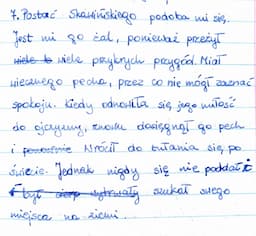 7. Postać Skawińskiego podoba mi się.
Jest mi go żal, ponieważ przeżył
wiele przykrych przygód. Miał
wiecznego pecha, przez co nie mógł zaznać
spokoju. Kiedy odnowiła się jego miłość
do ojczyzny, znowu dosięgnął go pech
i wrócił do tułania się po
świecie. Jednak nigdy się nie poddał i
szukał swego
miejsca na ziemi.